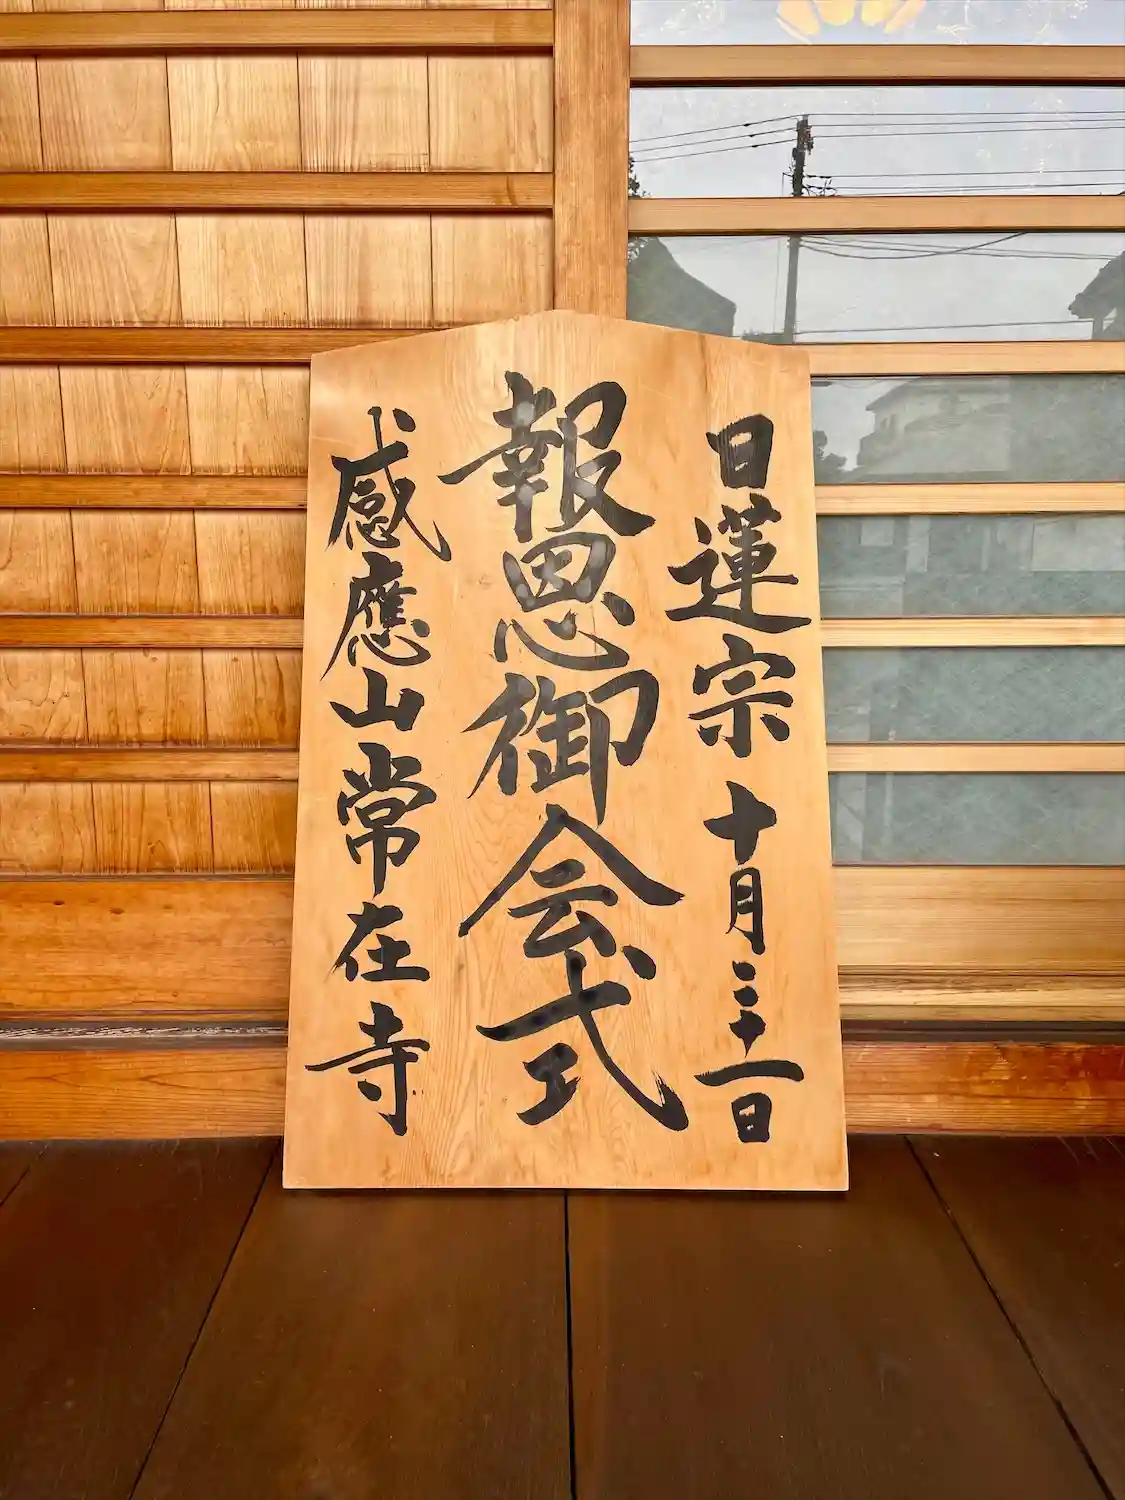 日蓮宗 十月三十一日
報恩御会式
感應山常在寺